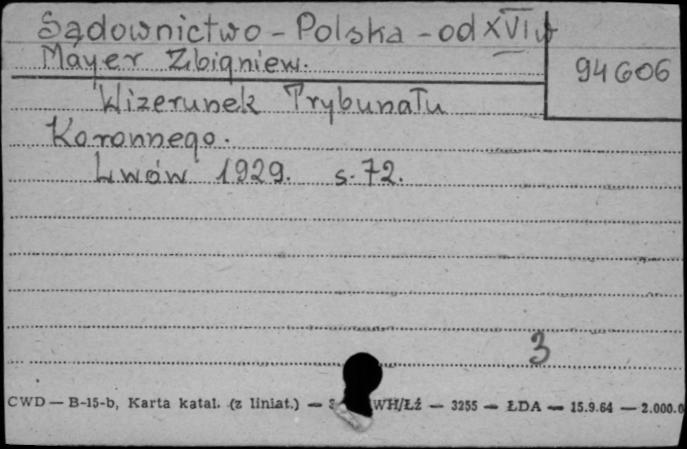 Sądownictwo - Polska - od XVI w
Mayer Zbigniew.
94606
Wizerunek Trybunału
Koronnego.
Lwów 1929. s. 72.
3
CWD — B-15-b, Karta katal. (z liniat.) — WH/Łź — 3255 — ŁDA — 15.9.64 — 2.000.0